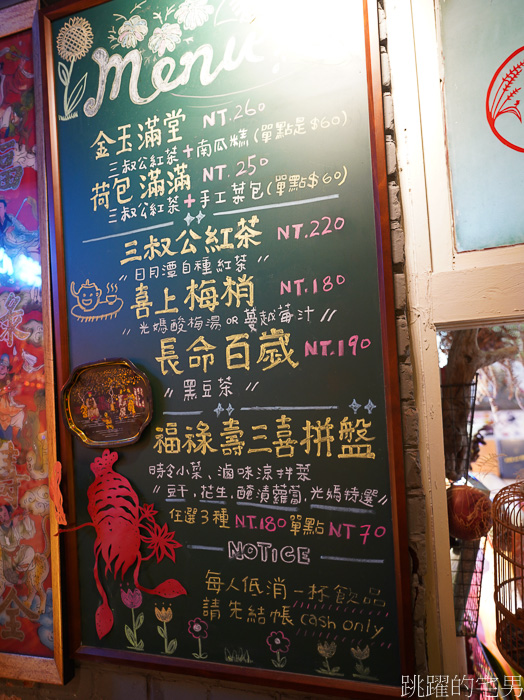 menu
金玉滿堂 NT.260
三叔公紅茶+南瓜糕(單點是$60)
荷包滿滿 NT.250
三叔公紅茶+手工菜包(單點$60)
三叔公紅茶 NT.220
"日月潭自種紅茶"
喜上梅梢 NT.180
"光媽酸梅湯 OR 蔓越莓汁"
長命百歲 NT.190
"黑豆茶"
福祿壽三喜拼盤
時令小菜、滷味涼拌菜
"豆干,花生,醃漬蘿蔔,光媽特選"
任選3種 NT.180 單點 NT70
NOTICE
每人低消一杯飲品
請先結帳 cash only
跳躍的宅男